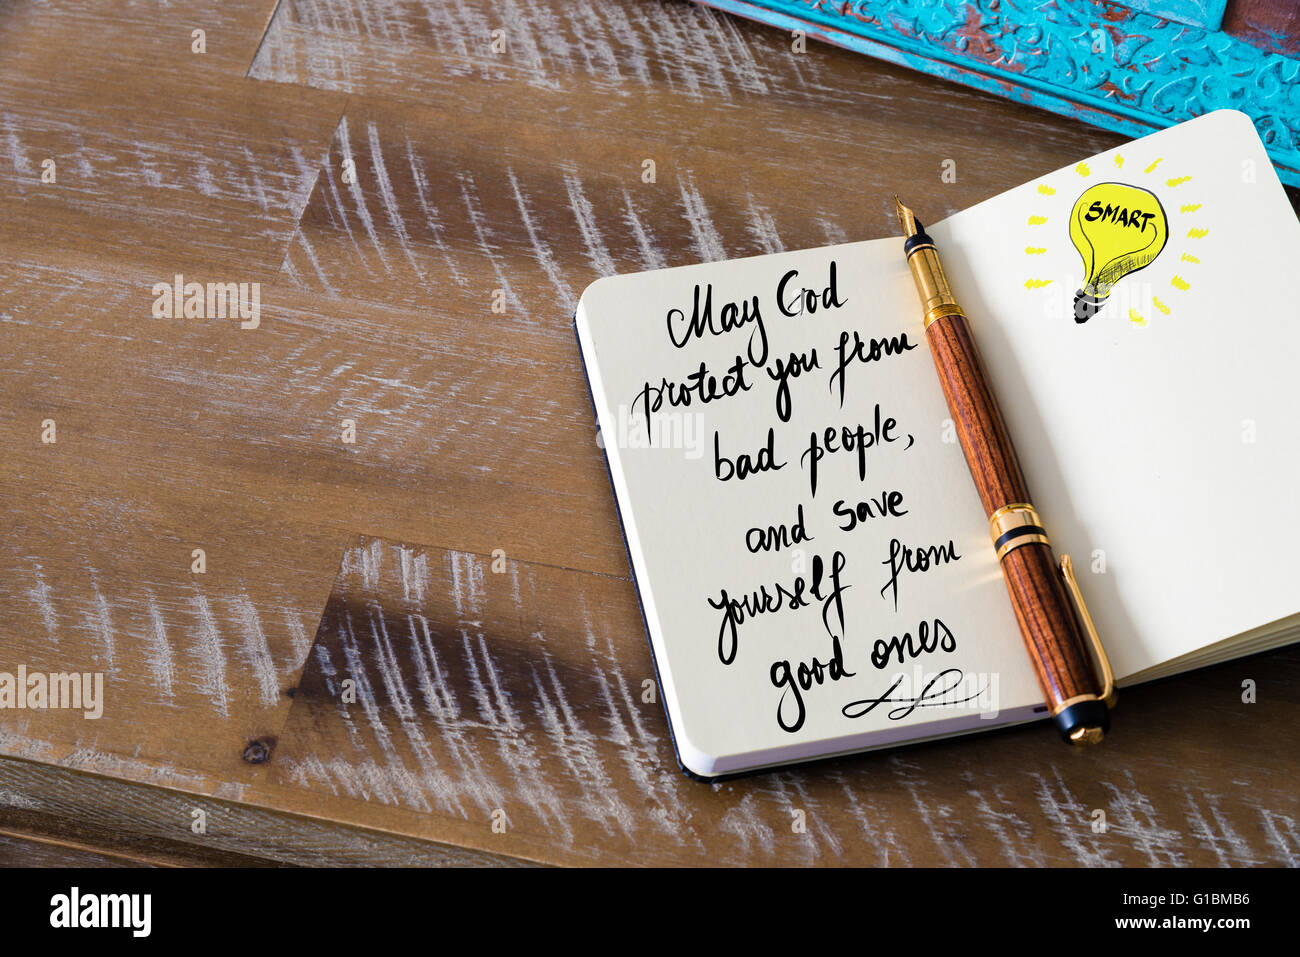 SMART
May God
protect you from
bad people,
and save
yourself from
good ones
alamy stock photo
alamy
G1BMB6
www.alamy.com